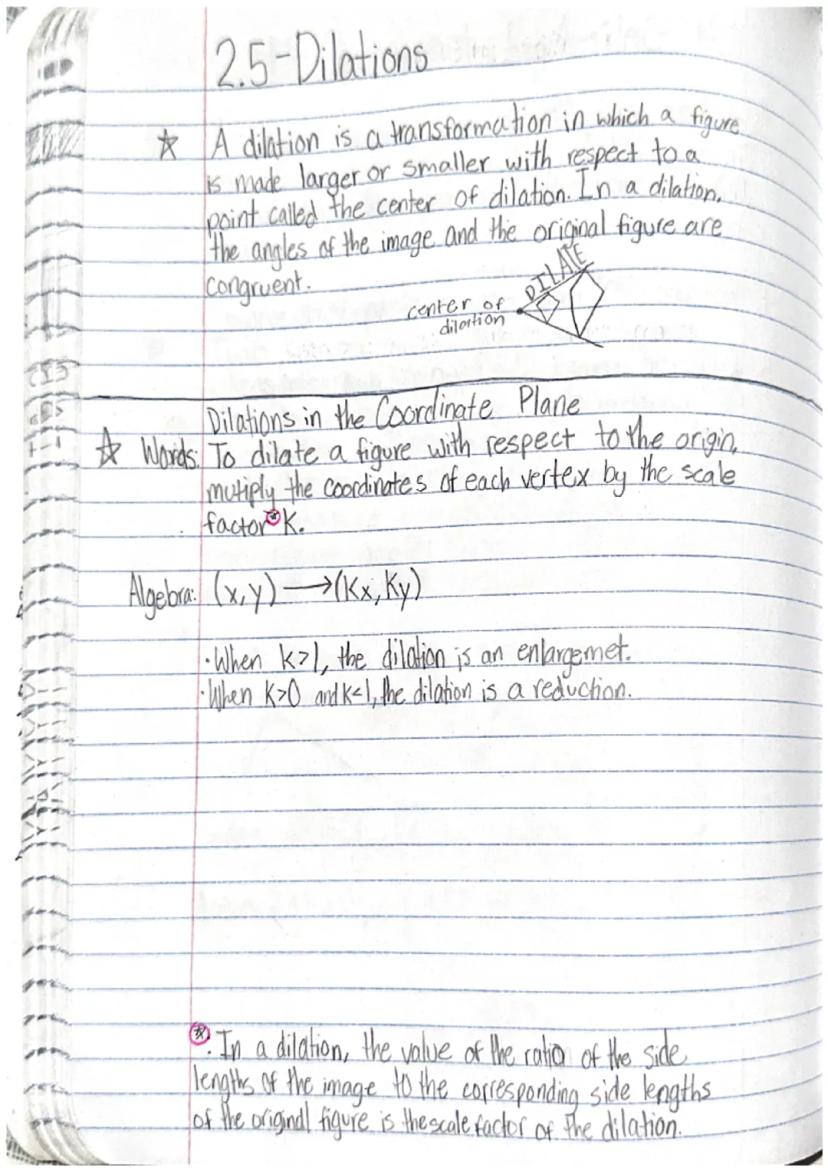 2.5-Dilations
☆ A dilation is a transformation in which a figure
is made larger or smaller with respect to a
point called the center of dilation. In a dilation,
the angles of the image and the original figure are
congruent.
DILATE
center of
dilation
Dilations in the Coordinate Plane
☆ Words: To dilate a figure with respect to the origin,
mutiply the coordinates of each vertex by the scale
factor K.
Algebra: (x,y) ⟶ (Kx, Ky)
·When k>1, the dilation is an enlargemet.
·When K>0 and K<1, the dilation is a reduction.
☆. In a dilation, the value of the ratio of the side
lengths of the image to the corresponding side lengths
of the original figure is the scale factor of the dilation.